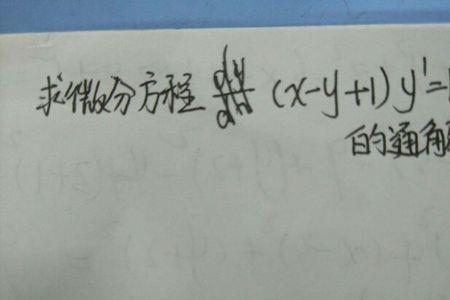 求微分方程 (x-y+1) y'=
的通解